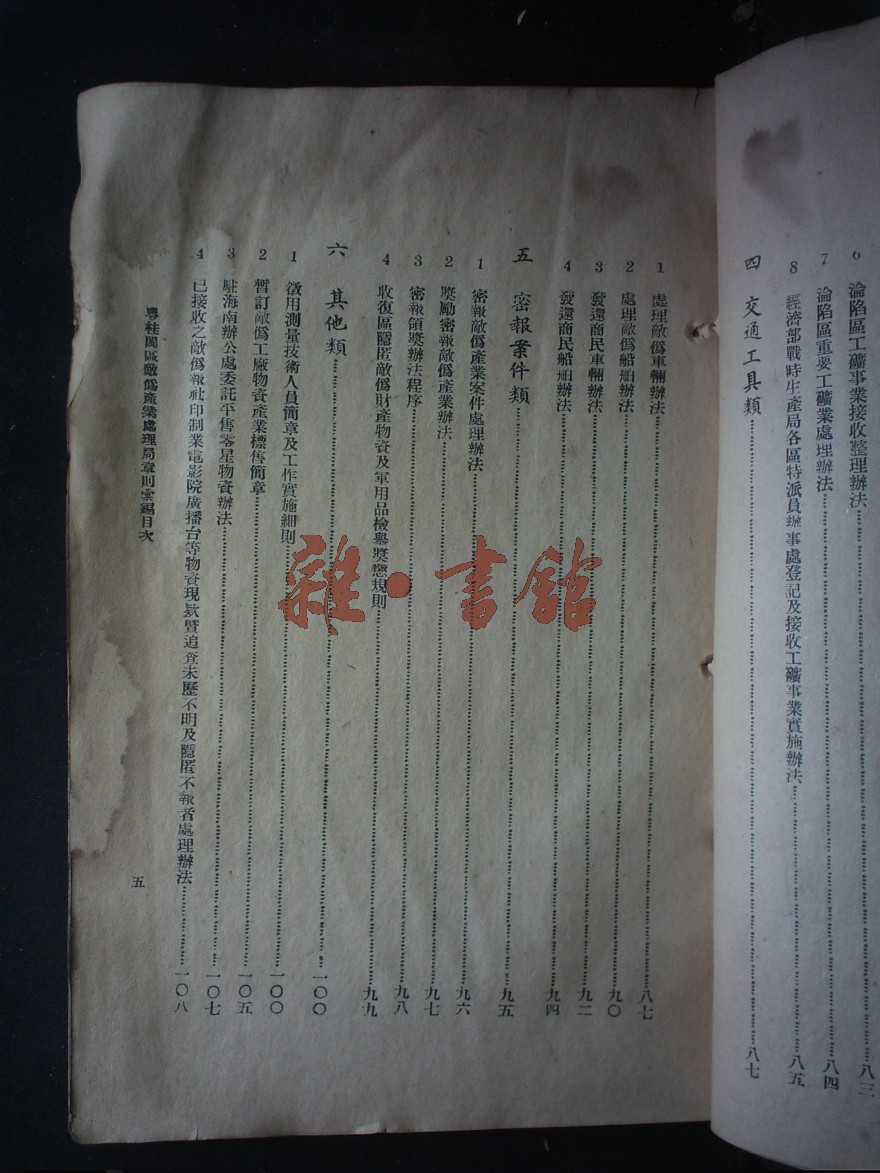 6 淪陷區工礦事業接收整理辦法 八三
7 淪陷區重要工礦業處理辦法 八四
8 經濟部戰時生產局各區特派員辦事處登記及接收工礦事業實施辦法 八五
四 交通工具類 八七
1 處理敵僞車輛辦法 八七
2 處理敵僞船舶辦法 九〇
3 發還商民車輛辦法 九二
4 發還商民船舶辦法 九四
五 密報案件類 九五
1 密報敵僞產業案件處理辦法 九六
2 獎勵密報敵僞產業辦法 九七
3 密報領獎辦法程序 九八
4 收復區隱匿敵僞財產物資及軍用品檢舉獎懲規則 九九
六 其他類 一〇〇
1 徵用測量技術人員簡章及工作實施細則 一〇〇
2 暫訂敵僞工廠物資產業標售簡章 一〇五
3 駐海南辦公處委託平售零星物資辦法 一〇七
4 已接收之敵僞報社印制業電影院廣播台等物資現款暨追查未歷不明及隱匿不報者處理辦法 一〇八
粵桂閩區敵僞產業處理局章則彙編目次
五
雜·書館